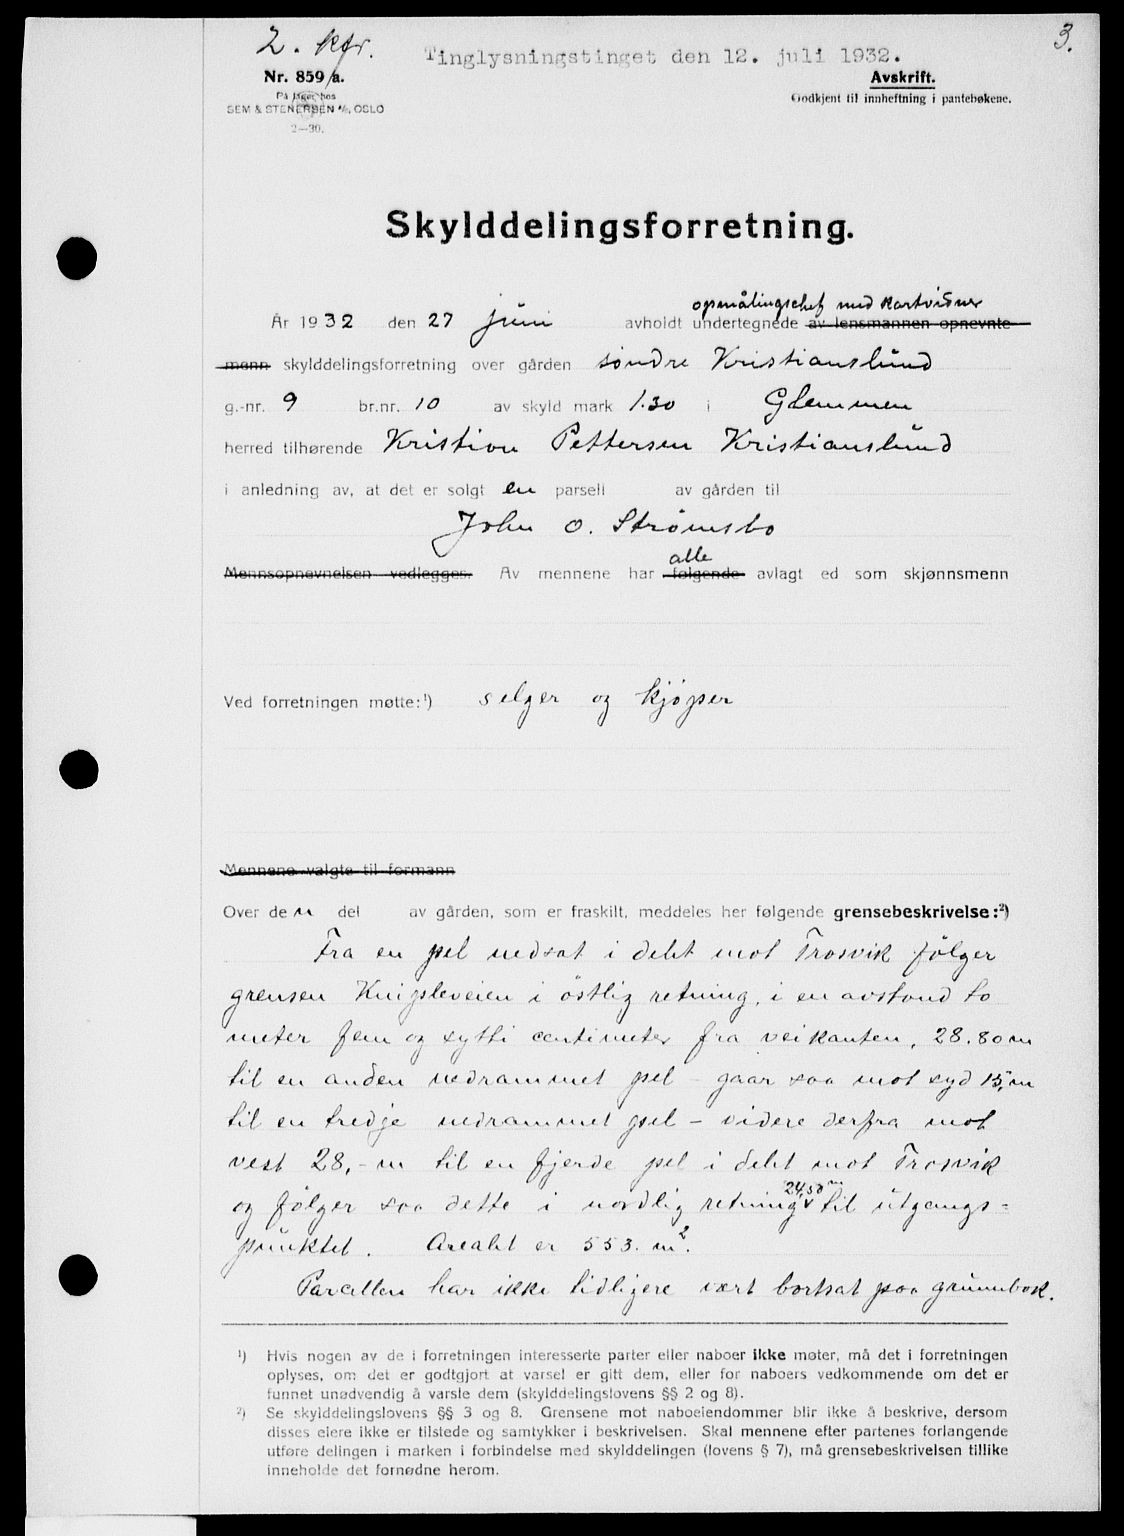 2. kfr.
3.
Tinglysningstinget den 12. juli 1932.
Nr. 859/a.
På lager hos
SEM & STENERSEN A/S, OSLO
2—30.
Avskrift.
Godkjent til innheftning i pantebøkene.
Skylddelingsforretning.
opmålingschef med kartvidner
År 1932 den 27 juni avholdt undertegnede av lensmannen opnevnte
menn skylddelingsforretning over gården söndre Kristianslund
g.-nr. 9 br.nr. 10 av skyld mark 1.30 i Glemmen
herred tilhørende Kristian Pettersen Kristianslund
i anledning av, at det er solgt en parsell av gården til
John O. Strømsbo
alle
Mennsopnevnelsen vedlegges. Av mennene har følgende avlagt ed som skjønnsmenn
Ved forretningen møtte:¹) selger og kjøper
Mennene valgte til formann
Over den del av gården, som er fraskilt, meddeles her følgende grensebeskrivelse:²)
Fra en pel nedsat i delet mot Trosvik følger
grensen Knipleveien i östlig retning, i en avstand to
meter fem og sytti centimeter fra veikanten, 28.80 m
til en anden nedrammet pel - gaar saa mot syd 15,- m
til en tredje nedrammet pel - videre derfra mot
vest 28,- m til en fjerde pel i delet mot Trosvik
24,50 m
og følger saa dette i nordlig retning til utgangs=
punktet. Arealet er 553. m².
Parcellen har ikke tidligere vært bortsat paa grunnbok.
¹) Hvis nogen av de i forretningen interesserte parter eller naboer ikke møter, må det i forretningen
oplyses, om det er godtgjort at varsel er gitt dem, eller for naboers vedkommende om det er
funnet unødvendig å varsle dem (skylddelingslovens §§ 2 og 8).
²) Se skylddelingslovens §§ 3 og 8. Grensene mot naboeiendommer blir ikke å beskrive, dersom
disses eiere ikke er tilstede og samtykker i beskrivelsen. Skal mennene efter partenes forlangende
utføre delingen i marken i forbindelse med skylddelingen (lovens § 7), må grensebeskrivelsen tillike
inneholde det fornødne herom.